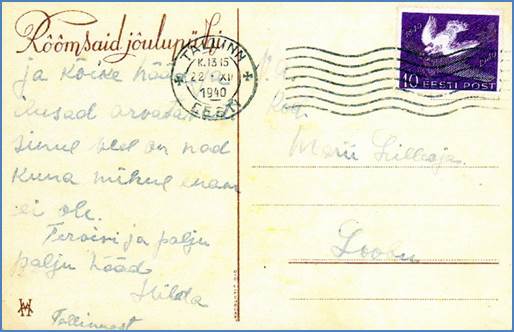 Rõõmsaid jõulupühi
ja kõike hääd
ilusad
sinul veel on nad
kuna minul enam
ei ole.
Tervisi ja palju
palju hääd
Hilda
Tallinnast
TALLINN
K. 13 15
22 XII
1940
EESTI
1840 1940
10 EESTI POST
Marii Lilleoja
Loovu